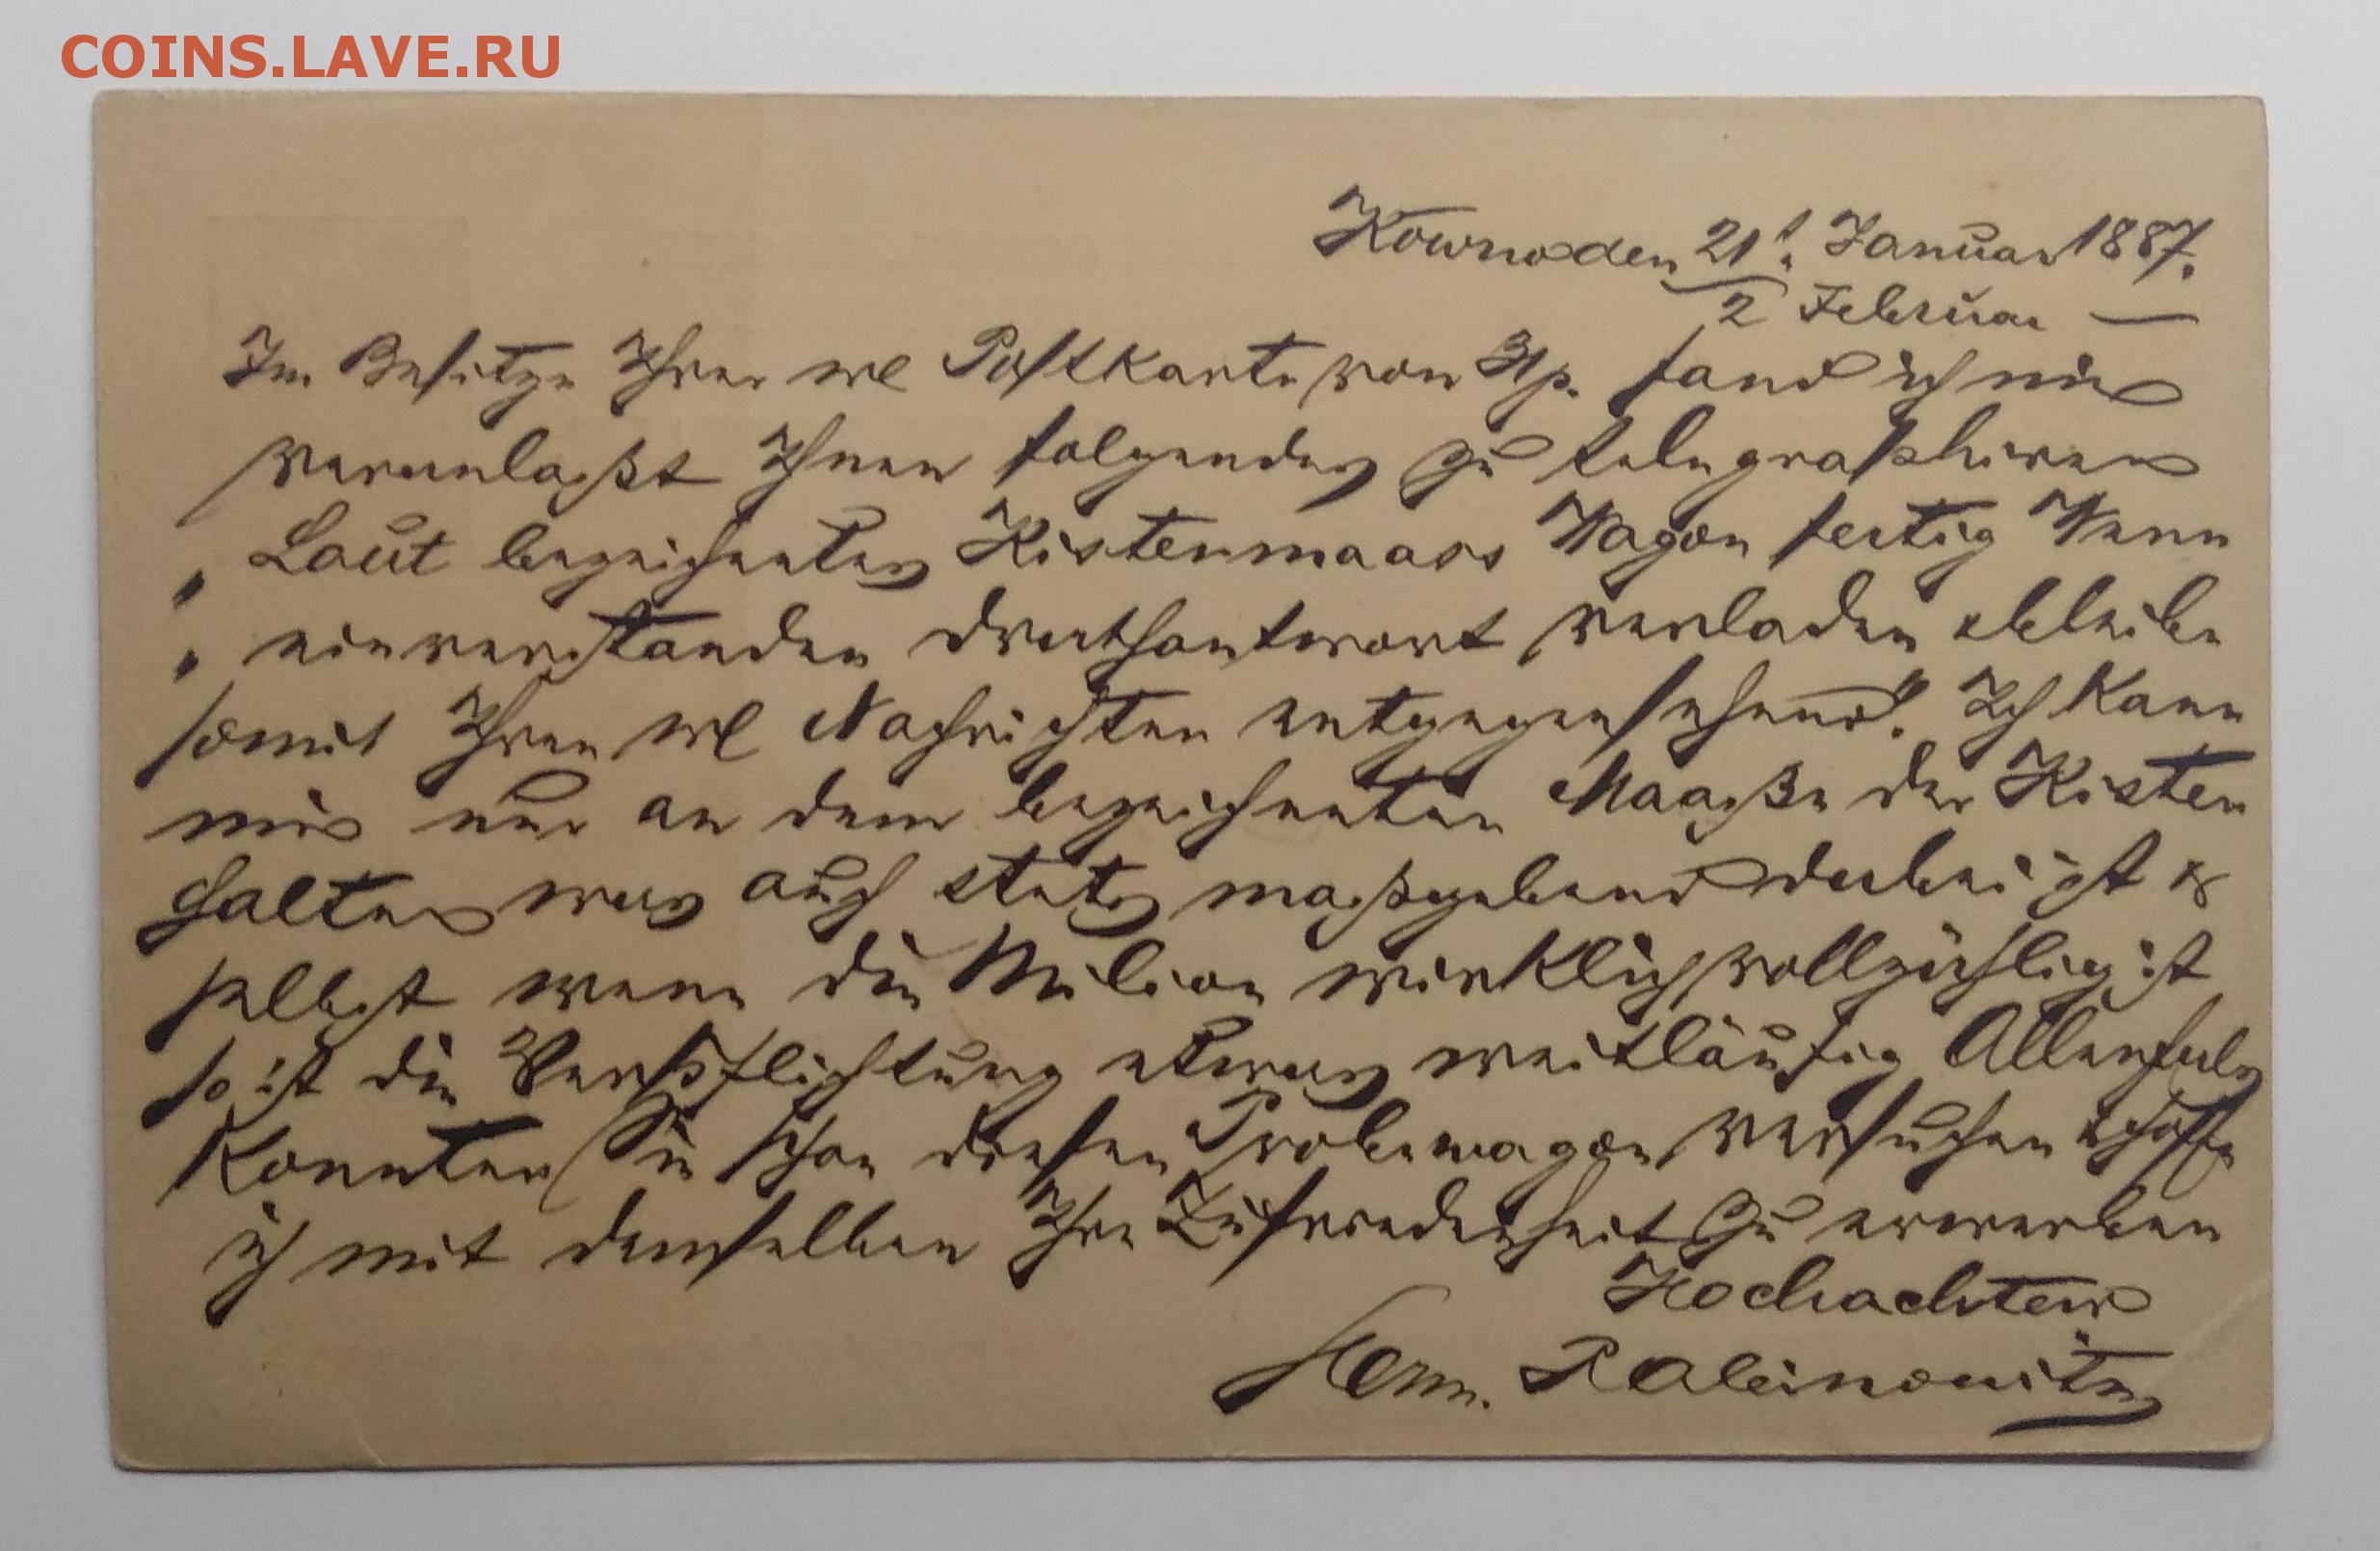 COINS.LAVE.RU
Kowno den 21t. Januar 1887.
2 Februar —
Im Besitze Ihrer we Postkarte von 31 p. fand ich mich
veranlaßt Ihnen folgendes zu telegraphiren
„ Laut bezeichneten Kistenmaass Wagon fertig Wenn
„ einverstanden drathantwort verladen & bleibe
somit Ihren we Nachrichten entgegensehend“. Ich kann
mich nur an dem bezeichneten Maaße der Kisten
halten was auch stets maßgebend dabei ist &
selbst wenn die Milion wirklich vollzählig ist
so ist die Verpflichtung etwas weitläufig Allenfals
konnten Sie schon diesen Probewagon versuchen & hoffe
ich mit demselben Ihre Zufriedenheit zu erwerben
Hochachtend
Herm. Rabinowitz